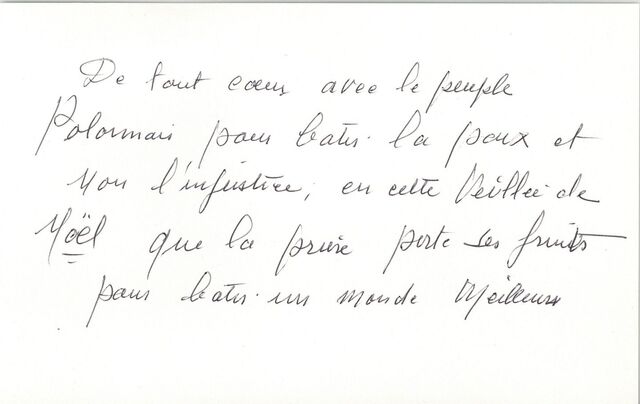 De tout coeur avec le peuple
Polonnais pour batir la paix et
Non l'injustice, en cette Veillée de
Noël que la prière porte ses fruits
pour batir un monde Meilleur